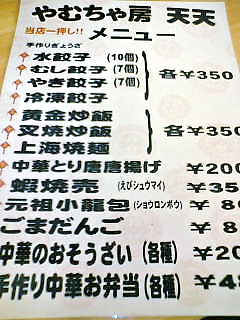 やむちゃ房 天天
当店一押し!! メニュー
手作りぎょうざ
水餃子 (10個)
むし餃子 (7個)
やき餃子 (7個)
各¥350
冷凍餃子
黄金炒飯
叉焼炒飯
上海焼麺
各¥350
中華とり唐唐揚げ ¥200
蝦焼売 (えびシュウマイ) ¥35
元祖小龍包 (ショウロンポウ) ¥ 8
ごまだんご ¥ 8
中華のおそうざい (各種) ¥20
手作り中華お弁当 (各種) ¥4